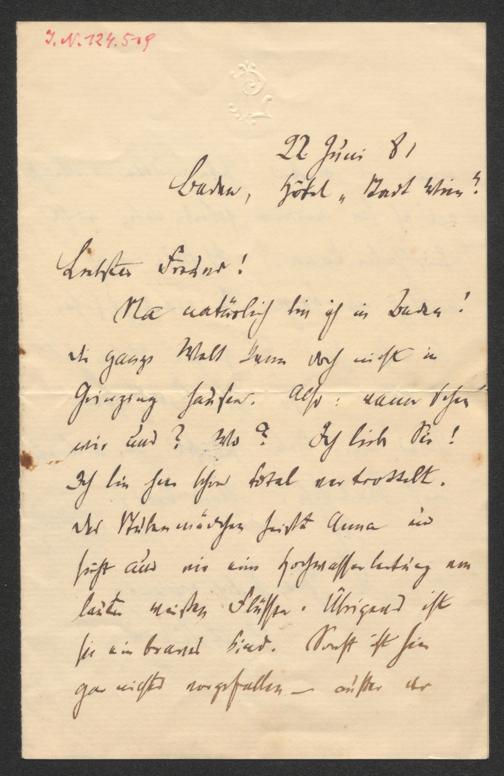 I.N. 124.519
22 Juni 81
Baden, Hôtel „Stadt Wien“!
Liebster Freund!
Na natürlich bin ich in Baden!
die ganze Welt kann doch nicht in
Grinzing hausen. Also: wann sehen
wir uns? Wo? Ich liebe Sie!
Ich bin hier schon total vertrottelt.
Das Stubenmädchen heißt Anna und
sieht aus wie eine Hochwasserleitung von
lauter weißen Flüssen. Übrigens ist
sie ein braves Kind. Sonst ist hier
gar nichts vorgefallen — außer der